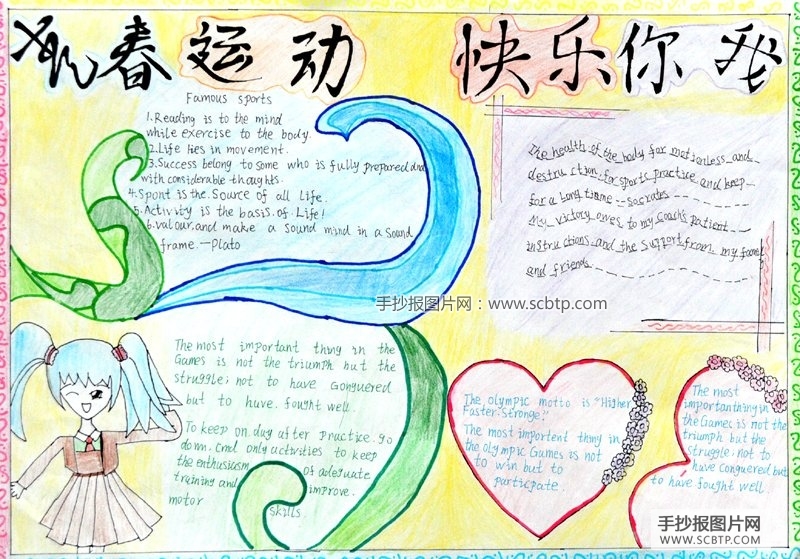 青春运动 快乐你我
Famous sports
1.Reading is to the mind
while exercise to the body.
2.Life lies in movement.
3.Success belong to some who is fully prepared and
with considerable thoughts.
4.Spont is the Source of all Life.
5.Activity is the basis of Life!
6.valour.and make a sound mind in a Sound
frame.—Plato
The health of the body for motionless and
destruction for sports practice and keep
for a long time --Socrates
My victory owes to my coach's patient
instructions and the support from my famel
and friends
手抄报图片网：www.scbtp.com
The most important thing in the
Games is not the triumph but the
struggle; not to have Gonquered
but to have. fought well.
To keep on day after practice. go
down. Cmd only uctivities to keep
the enthusiasm of adequate
training and improve.
motor skills.
The olympic motto is "Higher
Faster-Stronge."
The most importent thing in
the olympic Games is not
to win but to
particpate.
The most
important hing in
the Games is not the
triumph but the
struggle: not to
have conquered but
to have fought well
手抄报图片网
WWW.SCBTP.COM